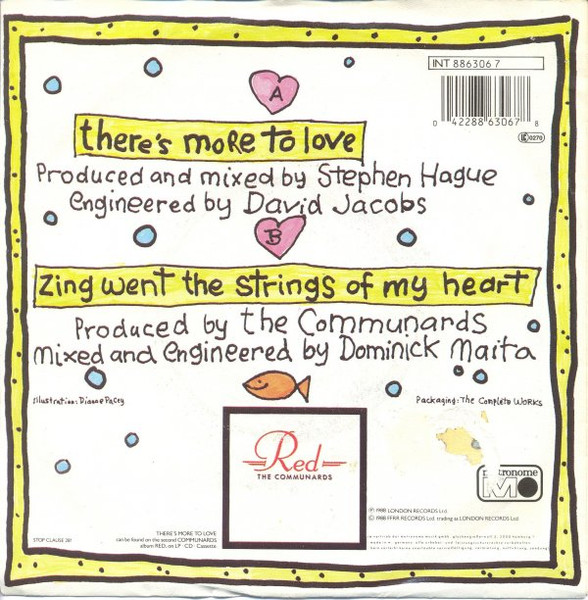 INT 886306 7
A
0 42288 63067 8
LC 0270
there's more to love
Produced and mixed by Stephen Hague
engineered by David Jacobs
B
Zing went the strings of my heart
Produced by the Communards
Mixed and engineered by Dominick Maita
Illustration: Dianne Pacey
Packaging: The Complete Works
Red
THE COMMUNARDS
tronome
℗ 1988 LONDON RECORDS Ltd.
© 1988 FFRR RECORDS Ltd. trading as LONDON RECORDS Ltd.
STOP CLAUSE 381
THERE'S MORE TO LOVE
can be found on the second COMMUNARDS
album RED, on LP · CD · Cassette